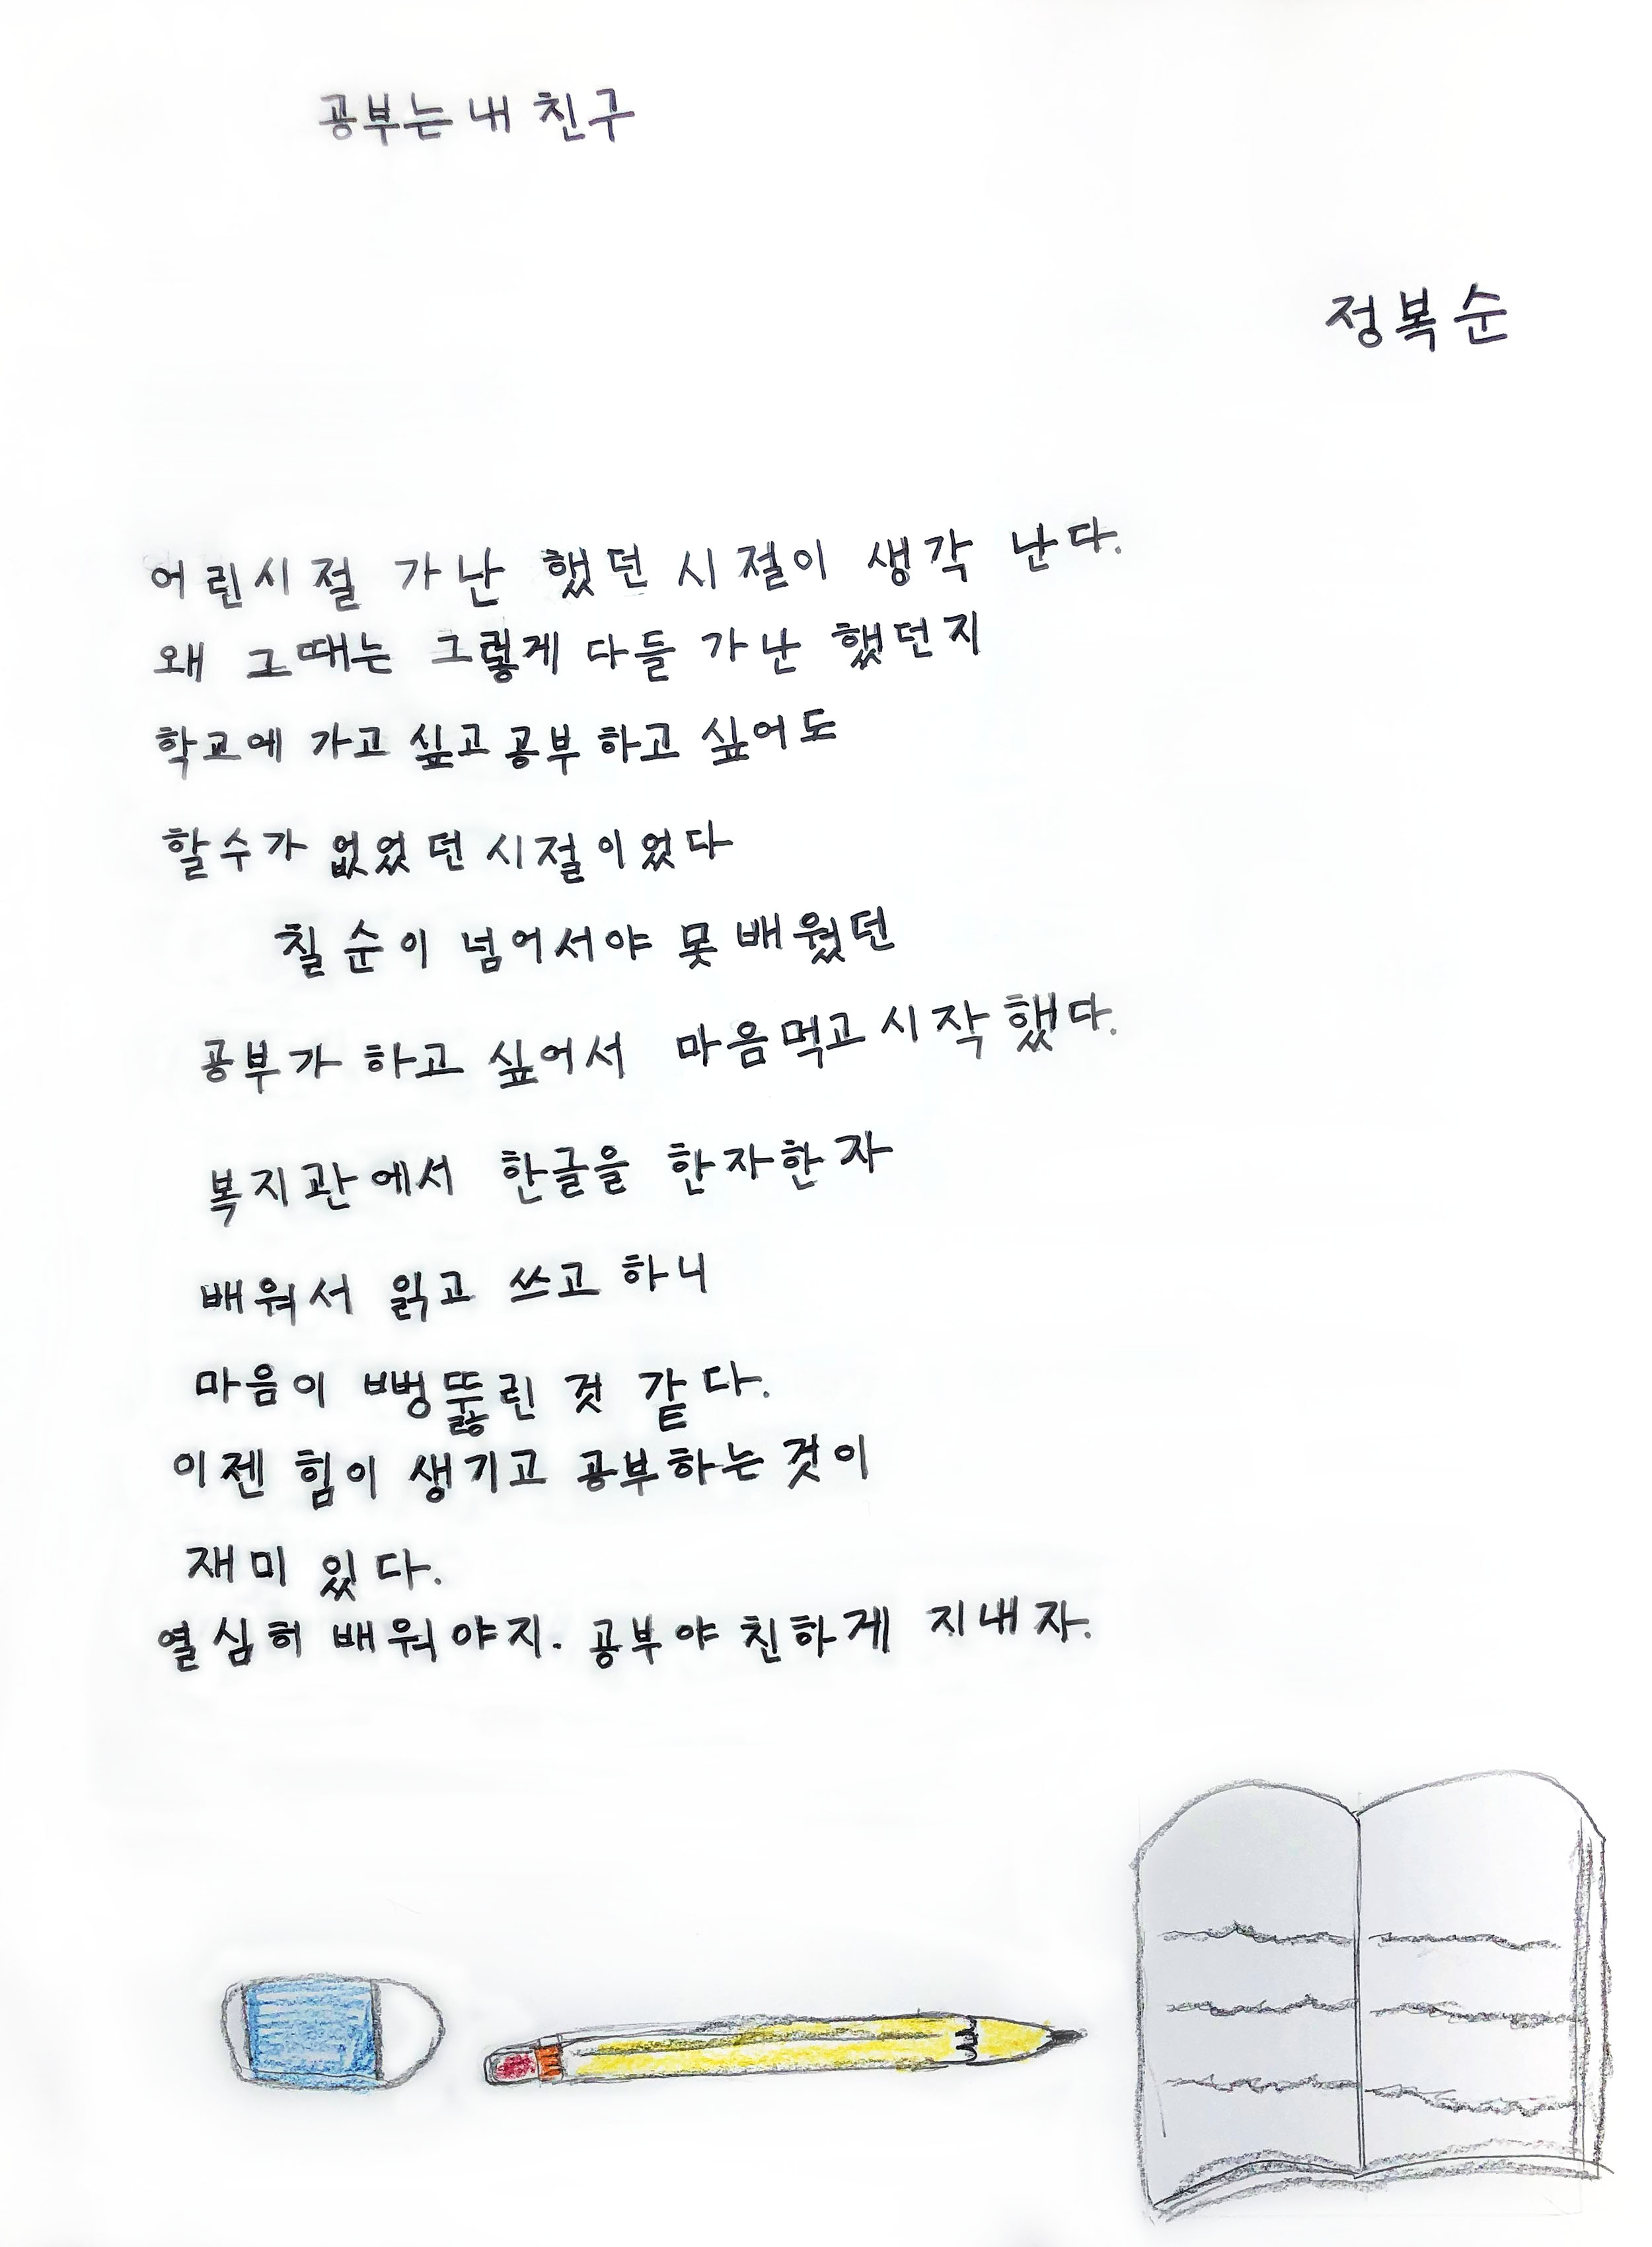 공부는 내 친구
정복순
어린시절 가난 했던 시절이 생각 난다.
왜 그때는 그렇게 다들 가난 했던지
학교에 가고 싶고 공부 하고 싶어도
할수가 없었던 시절이었다
칠순이 넘어서야 못 배웠던
공부가 하고 싶어서 마음먹고 시작 했다.
복지관에서 한글을 한자한자
배워서 읽고 쓰고 하니
마음이 뻥뚫린 것 같다.
이젠 힘이 생기고 공부하는 것이
재미 있다.
열심히 배워야지. 공부야 친하게 지내자.